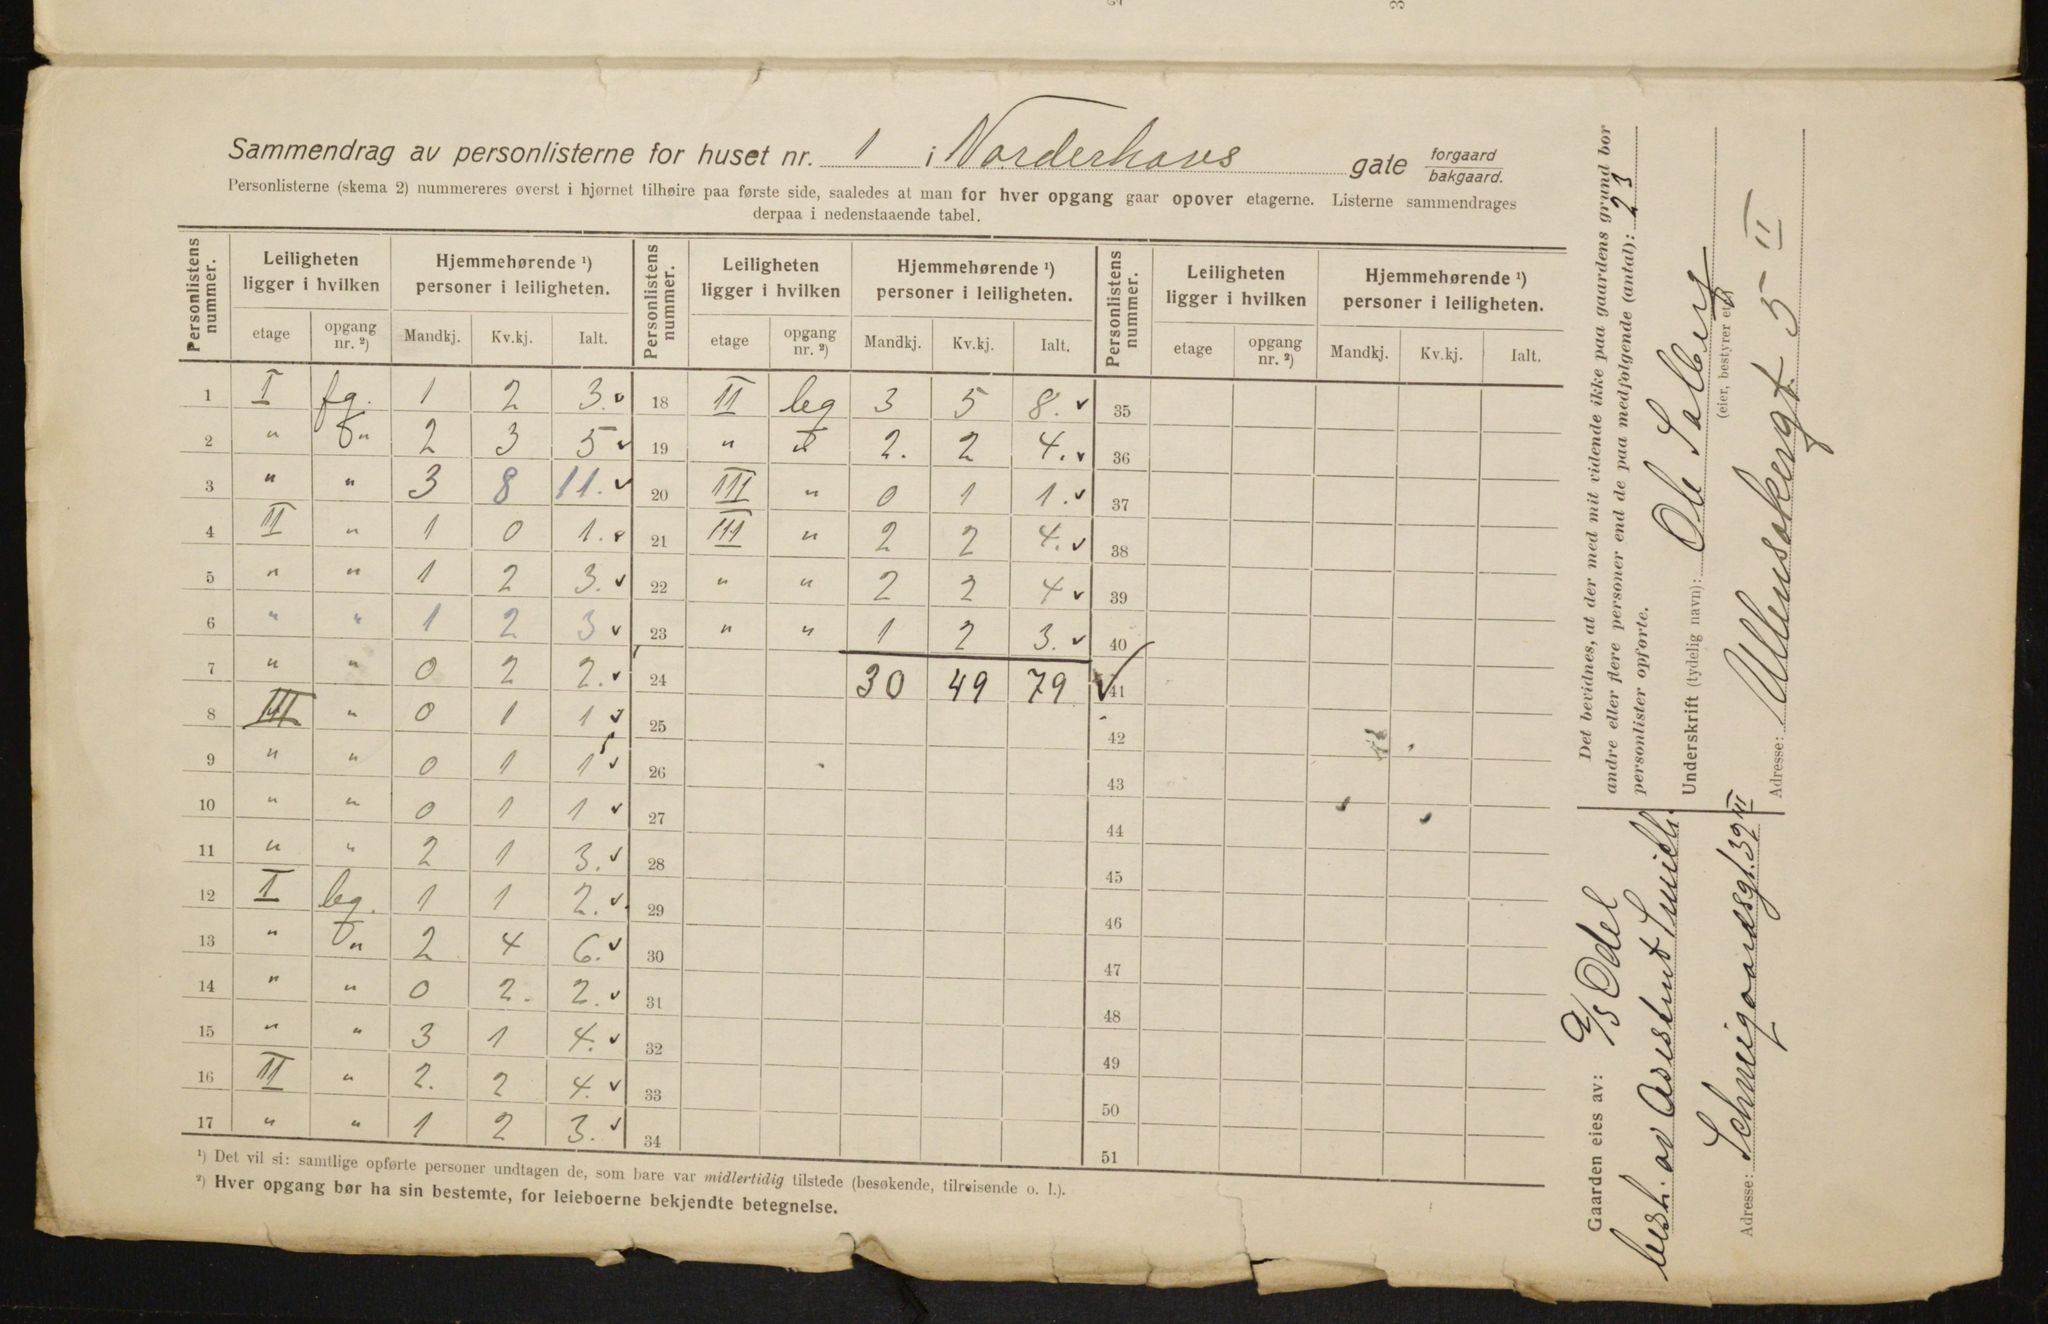 Sammendrag av personlisterne for huset nr. 1 i Norderhovs gate forgaard bakgaard.
Personlisterne (skema 2) nummereres øverst i hjørnet tilhøire paa første side, saaledes at man for hver opgang gaar opover etagerne. Listerne sammendrages
derpaa i nedenstaaende tabel.
Personlistens nummer. Leiligheten ligger i hvilken Hjemmehørende ¹) personer i leiligheten. Personlistens nummer. Leiligheten ligger i hvilken Hjemmehørende ¹) personer i leiligheten. Personlistens nummer. Leiligheten ligger i hvilken Hjemmehørende ¹) personer i leiligheten.
etage opgang nr. ²) Mandkj. Kv.kj. Ialt. etage opgang nr. ²) Mandkj. Kv.kj. Ialt. etage opgang nr. ²) Mandkj. Kv.kj. Ialt.
1 I fg. 1 2 3. 18 II bg 3 5 8. 35
2 " " 2 3 5 19 " " 2. 2 4. 36
3 " " 3 8 11. 20 III " 0 1 1. 37
4 II " 1 0 1. 21 III " 2 2 4. 38
5 " " 1 2 3. 22 " " 2 2 4 39
6 " " 1 2 3 23 " " 1 2 3. 40
7 " " 0 2 2. 24 30 49 79 41
8 III " 0 1 1 25 42
9 " " 0 1 1 26 43
10 " " 0 1 1 27 44
11 " " 2 1 3. 28 45
12 I bg. 1 1 2. 29 46
13 " " 2 4 6. 30 47
14 " " 0 2. 2. 31 48
15 " " 3 1 4. 32 49
16 II " 2. 2 4. 33 50
17 " " 1 2 3. 34 51
¹) Det vil si: samtlige opførte personer undtagen de, som bare var midlertidig tilstede (besøkende, tilreisende o. l.).
²) Hver opgang bør ha sin bestemte, for leieboerne bekjendte betegnelse.
Det bevidnes, at der med mit vidende ikke paa gaardens grund bor
andre eller flere personer end de paa medfølgende (antal): 23
personlister opførte.
Underskrift (tydelig navn): Ole Solberg
(eier, bestyrer etc.)
Adresse: Ullensakergt. 5 II
Gaarden eies av: A/S Odel
best. av Assistent
Adresse: Schweigaardsgt. 39 III